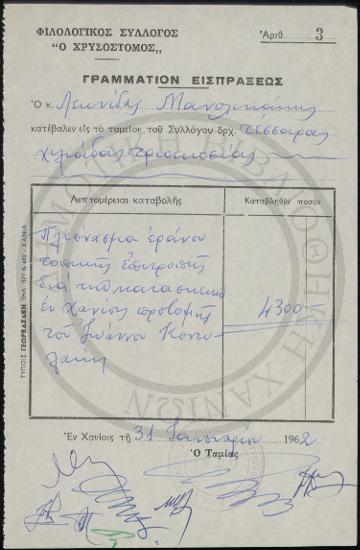 ΦΙΛΟΛΟΓΙΚΟΣ ΣΥΛΛΟΓΟΣ
"Ο ΧΡΥΣΟΣΤΟΜΟΣ„
Ἀριθ. 3
ΓΡΑΜΜΑΤΙΟΝ ΕΙΣΠΡΑΞΕΩΣ
Ὁ κ. Λεωνίδας Μανωλικάκης
κατέβαλεν εἰς τὸ ταμεῖον τοῦ Συλλόγου δρχ. τέσσαρας
χιλιάδας τριακοσίας
Λεπτομέρεια καταβολῆς
Καταβληθὲν ποσὸν
Πλεόνασμα ἐράνου
τοπικῆς ἐπιτροπῆς
διὰ τὴν κατασκευὴν
ἐν Χανίοις προτομῆς
4300
τοῦ Ἰωάννου Κονδυ
λάκη
ΤΥΠΟΙΣ ΓΕΩΡΒΑΣΑΚΗ ΤΗΛ. 571 & 482 - ΧΑΝΙΑ
Ἐν Χανίοις τῇ 31 Ἰανουαρίου 1962
Ὁ Ταμίας
ΔΗΜΟΤΙΚΗ ΒΙΒΛΙΟΘΗΚΗ ΧΑΝΙΩΝ